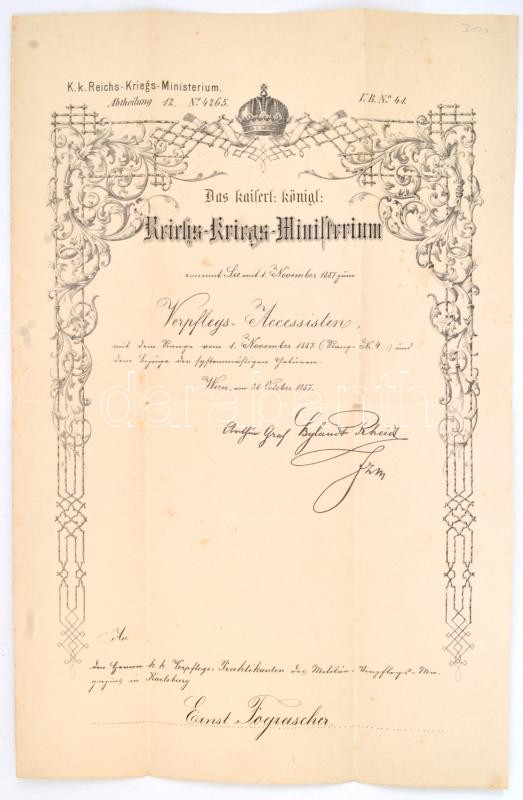 3000
K.k. Reichs-Kriegs-Ministerium.
Abtheilung 12. No. 4265. V.B. No. 41.
Das kaiserl: königl:
Reichs-Kriegs-Ministerium
ernennt Sie mit 1. November 1887 zum
Verpflegs-Accessisten,
mit dem Range vom 1. November 1887 (Rang-No. 4.) und
dem Bezuge der systemmäßigen Gebüren.
Wien, am 26. October 1887.
darabanth
Arthur Graf Bylandt Rheid
Fzm
An
den Herrn k.k. Verpflegs-Praktikanten des Militär-Verpflegs-Ma-
gazins in Karlsburg
Ernst Fograscher.